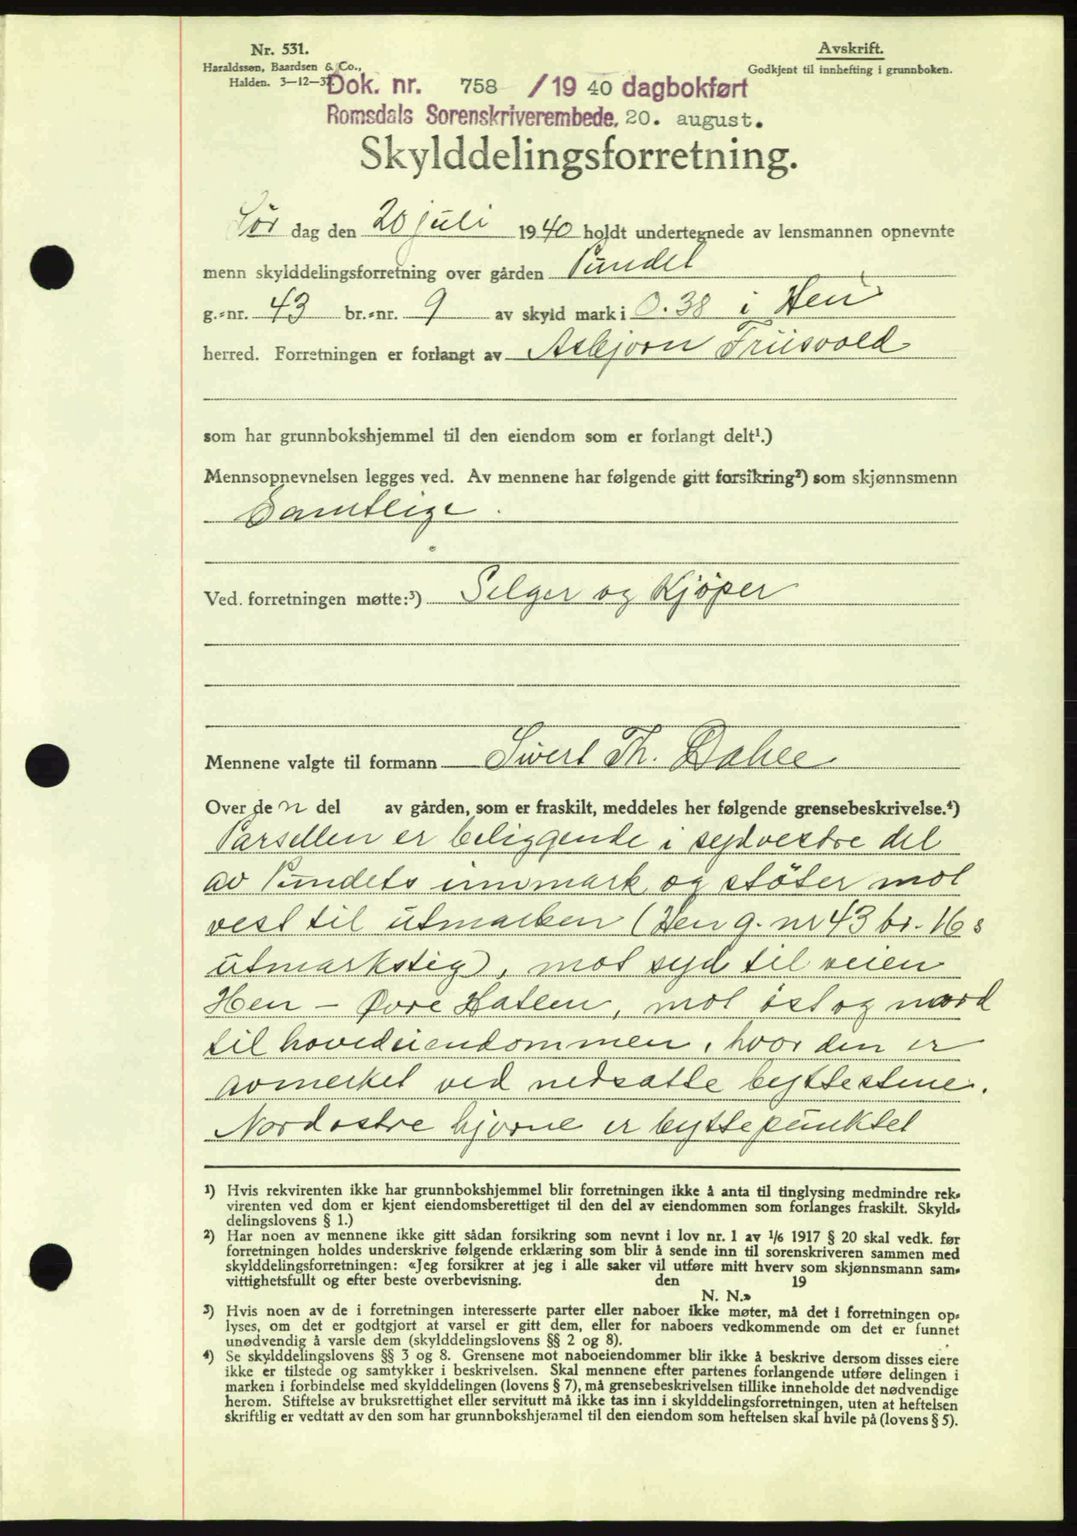 Nr. 531.
Haraldssøn, Baardsen & Co.,
Halden. 3-12-37.
Avskrift.
Godkjent til innhefting i grunnboken.
Dok. nr. 758 / 19 40 dagbokført
Romsdals Sorenskriverembede, 20. august.
Skylddelingsforretning.
Lør dag den 20 juli 19 40 holdt undertegnede av lensmannen opnevnte
menn skylddelingsforretning over gården Pundet
g.-nr. 43 br.-nr. 9 av skyld mark i 0.38 i Hen
herred. Forretningen er forlangt av Asbjørn Friisvold
som har grunnbokshjemmel til den eiendom som er forlangt delt¹.)
Mennsopnevnelsen legges ved. Av mennene har følgende gitt forsikring²) som skjønnsmenn
Samtlige.
Ved. forretningen møtte:³) Selger og Kjøper
Mennene valgte til formann Sivert Th. Dahle
Over de n del av gården, som er fraskilt, meddeles her følgende grensebeskrivelse.⁴)
Parsellen er beliggende i sydvestre del
av Pundets innmark og støter mot
vest til utmarken (Hen g. nr 43 br. 16s
utmarksteig), mot syd til veien
Hen - Øvre Hatlen, mot øst og nord
til hovedeiendommen, hvor den er
avmerket ved nedsatte byttestene.
Nordøstre hjørne er byttepunktet
¹) Hvis rekvirenten ikke har grunnbokshjemmel blir forretningen ikke å anta til tinglysing medmindre rek-
virenten ved dom er kjent eiendomsberettiget til den del av eiendommen som forlanges fraskilt. Skyld-
delingslovens § 1.)
²) Har noen av mennene ikke gitt sådan forsikring som nevnt i lov nr. 1 av 1/6 1917 § 20 skal vedk. før
forretningen holdes underskrive følgende erklæring som blir å sende inn til sorenskriveren sammen med
skylddelingsforretningen: «Jeg forsikrer at jeg i alle saker vil utføre mitt hverv som skjønnsmann sam-
vittighetsfullt og efter beste overbevisning. den 19
N. N.»
³) Hvis noen av de i forretningen interesserte parter eller naboer ikke møter, må det i forretningen op-
lyses, om det er godtgjort at varsel er gitt dem, eller for naboers vedkommende om det er funnet
unødvendig å varsle dem (skylddelingslovens §§ 2 og 8).
⁴) Se skylddelingslovens §§ 3 og 8. Grensene mot naboeiendommer blir ikke å beskrive dersom disses eiere
ikke er tilstede og samtykker i beskrivelsen. Skal mennene efter partenes forlangende utføre delingen i
marken i forbindelse med skylddelingen (lovens § 7), må grensebeskrivelsen tillike inneholde det nødvendige
herom. Stiftelse av bruksrettighet eller servitutt må ikke tas inn i skylddelingsforretningen, uten at heftelsen
skriftlig er vedtatt av den som har grunnbokshjemmel til den eiendom som heftelsen skal hvile på (lovens § 5).